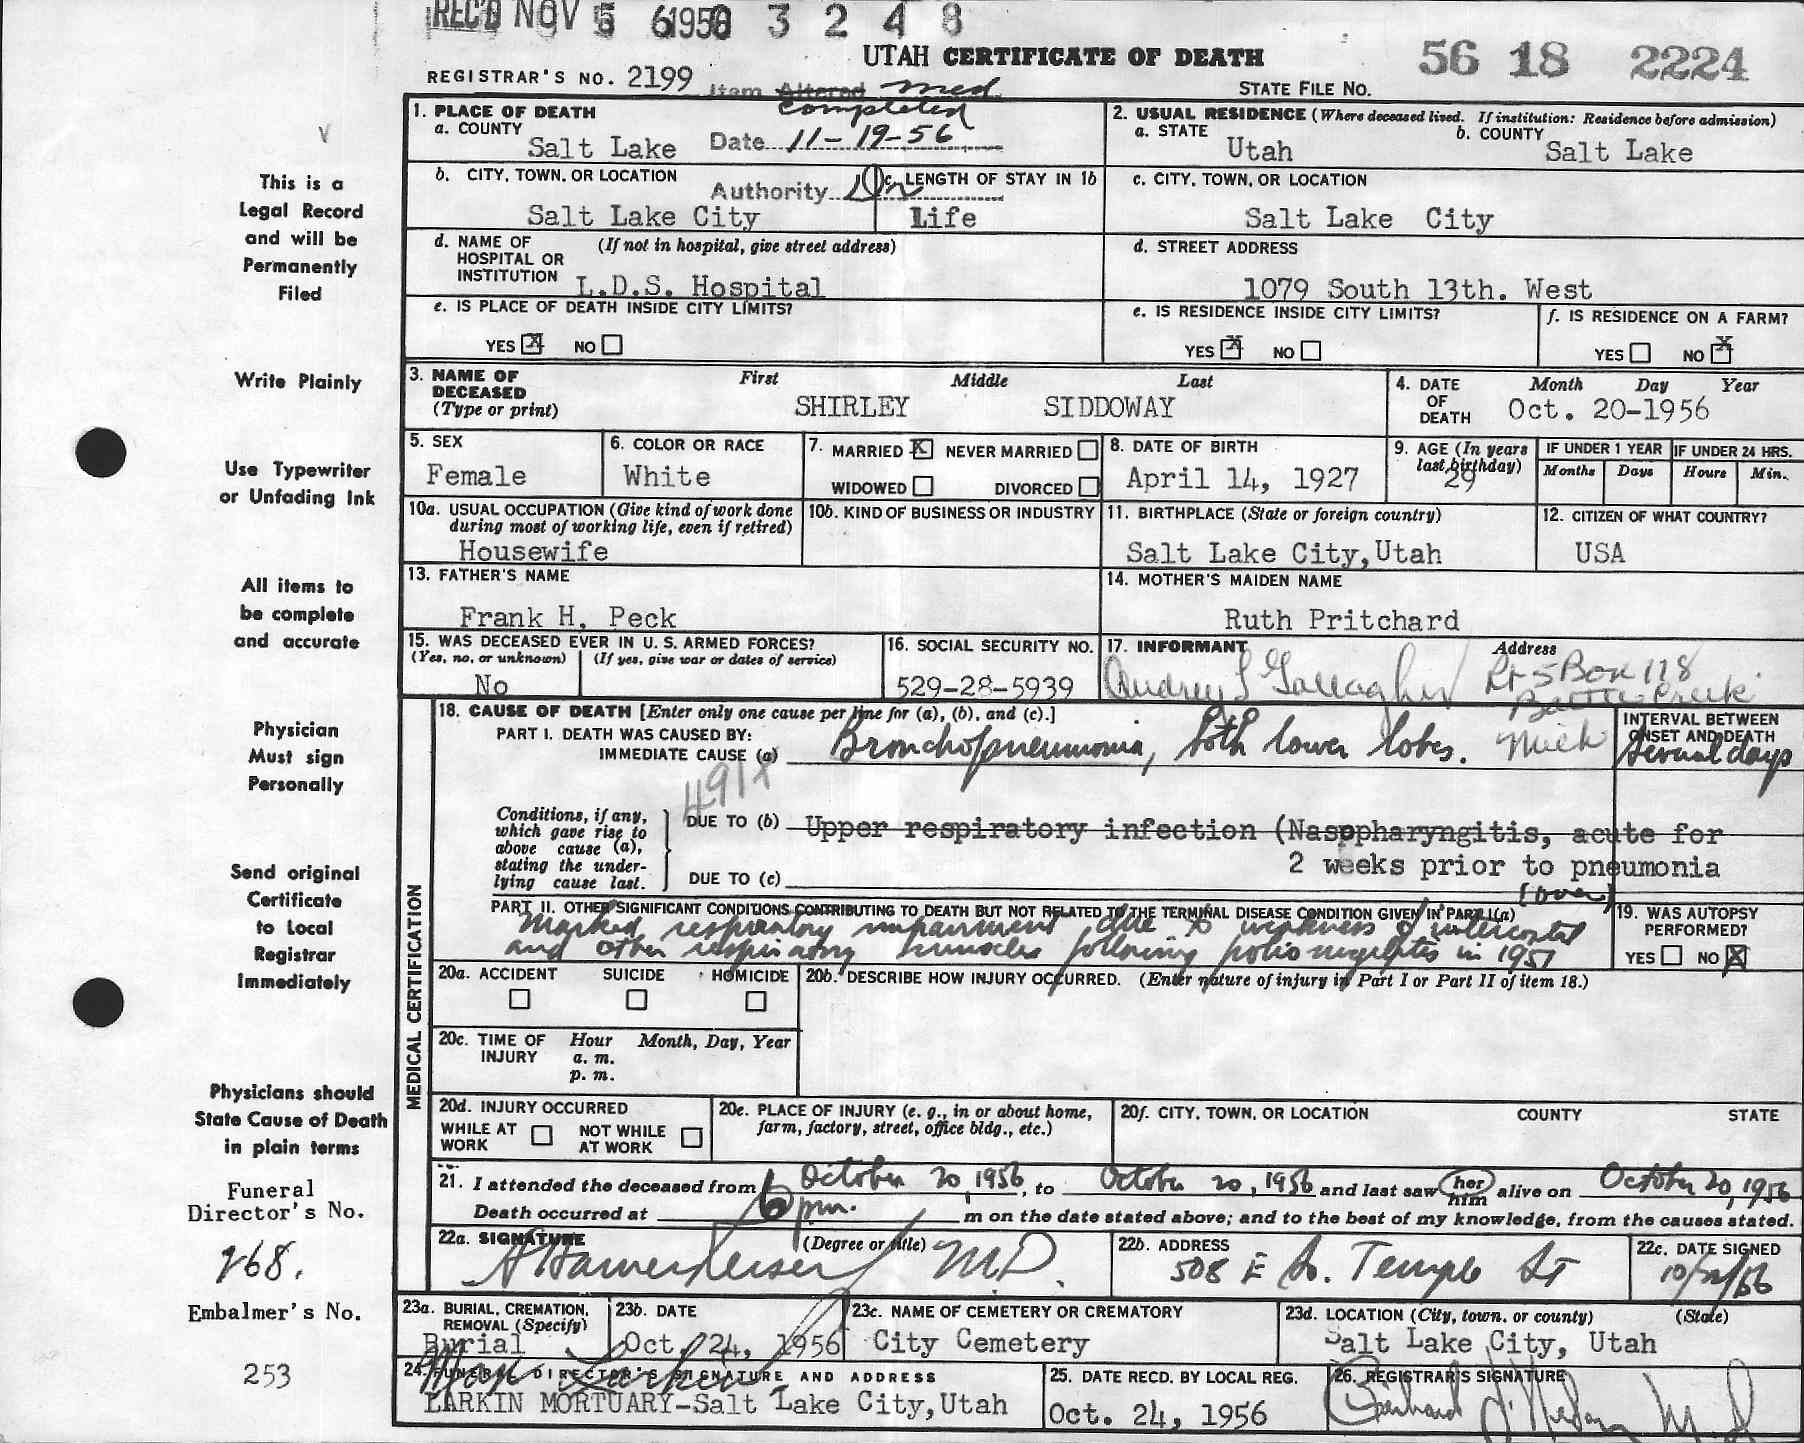 REC'D NOV 5 6 1956 3 2 4 8
UTAH CERTIFICATE OF DEATH
56 18 2224
REGISTRAR'S NO. 2199
Item Altered med
completed
STATE FILE NO.
1. PLACE OF DEATH
a. COUNTY
Salt Lake
Date 11-19-56
2. USUAL RESIDENCE (Where deceased lived. If institution: Residence before admission)
a. STATE
Utah
b. COUNTY
Salt Lake
b. CITY, TOWN, OR LOCATION
Salt Lake City
Authority Dr
c. LENGTH OF STAY IN 1b
Life
c. CITY, TOWN, OR LOCATION
Salt Lake City
d. NAME OF HOSPITAL OR INSTITUTION
(If not in hospital, give street address)
L.D.S. Hospital
d. STREET ADDRESS
1079 South 13th. West
e. IS PLACE OF DEATH INSIDE CITY LIMITS?
YES X NO
e. IS RESIDENCE INSIDE CITY LIMITS?
YES X NO
f. IS RESIDENCE ON A FARM?
YES NO X
3. NAME OF DECEASED
(Type or print)
First Middle Last
SHIRLEY SIDDOWAY
4. DATE OF DEATH
Month Day Year
Oct. 20-1956
5. SEX
Female
6. COLOR OR RACE
White
7. MARRIED X NEVER MARRIED
WIDOWED DIVORCED
8. DATE OF BIRTH
April 14, 1927
9. AGE (In years last birthday)
29
IF UNDER 1 YEAR
Months Days
IF UNDER 24 HRS.
Hours Min.
10a. USUAL OCCUPATION (Give kind of work done during most of working life, even if retired)
Housewife
10b. KIND OF BUSINESS OR INDUSTRY
11. BIRTHPLACE (State or foreign country)
Salt Lake City, Utah
12. CITIZEN OF WHAT COUNTRY?
USA
13. FATHER'S NAME
Frank H. Peck
14. MOTHER'S MAIDEN NAME
Ruth Pritchard
15. WAS DECEASED EVER IN U. S. ARMED FORCES?
(Yes, no, or unknown) (If yes, give war or dates of service)
No
16. SOCIAL SECURITY NO.
529-28-5939
17. INFORMANT
Address
Audrey S Gallagher Rt 5 Box 118
Battle Creek
Mich
MEDICAL CERTIFICATION
18. CAUSE OF DEATH [Enter only one cause per line for (a), (b), and (c).]
PART I. DEATH WAS CAUSED BY:
IMMEDIATE CAUSE (a) Bronchopneumonia, both lower lobes.
INTERVAL BETWEEN ONSET AND DEATH
Several days
491X
Conditions, if any, which gave rise to above cause (a), stating the underlying cause last.
DUE TO (b) Upper respiratory infection (Nasopharyngitis, acute for
2 weeks prior to pneumonia
DUE TO (c)
(over)
PART II. OTHER SIGNIFICANT CONDITIONS CONTRIBUTING TO DEATH BUT NOT RELATED TO THE TERMINAL DISEASE CONDITION GIVEN IN PART I(a)
Marked respiratory impairment due to weakness of intercostal
and other respiratory muscles following polio myelitis in 1951
19. WAS AUTOPSY PERFORMED?
YES NO X
20a. ACCIDENT SUICIDE HOMICIDE
20b. DESCRIBE HOW INJURY OCCURRED. (Enter nature of injury in Part I or Part II of item 18.)
20c. TIME OF INJURY
Hour Month, Day, Year
a. m.
p. m.
20d. INJURY OCCURRED
WHILE AT WORK NOT WHILE AT WORK
20e. PLACE OF INJURY (e. g., in or about home, farm, factory, street, office bldg., etc.)
20f. CITY, TOWN, OR LOCATION COUNTY STATE
21. I attended the deceased from October 20 1956, to October 20, 1956 and last saw her him alive on October 20, 1956
Death occurred at 6 pm. m on the date stated above; and to the best of my knowledge, from the causes stated.
22a. SIGNATURE
(Degree or title)
M.D.
22b. ADDRESS
508 E So. Temple St
22c. DATE SIGNED
23a. BURIAL, CREMATION, REMOVAL (Specify)
Burial
23b. DATE
Oct. 24, 1956
23c. NAME OF CEMETERY OR CREMATORY
City Cemetery
23d. LOCATION (City, town, or county) (State)
Salt Lake City, Utah
24. FUNERAL DIRECTOR'S SIGNATURE AND ADDRESS
LARKIN MORTUARY-Salt Lake City, Utah
25. DATE RECD. BY LOCAL REG.
Oct. 24, 1956
26. REGISTRAR'S SIGNATURE
This is a
Legal Record
and will be
Permanently
Filed
Write Plainly
Use Typewriter
or Unfading Ink
All items to
be complete
and accurate
Physician
Must sign
Personally
Send original
Certificate
to Local
Registrar
Immediately
Physicians should
State Cause of Death
in plain terms
Funeral
Director's No.
268.
Embalmer's No.
253